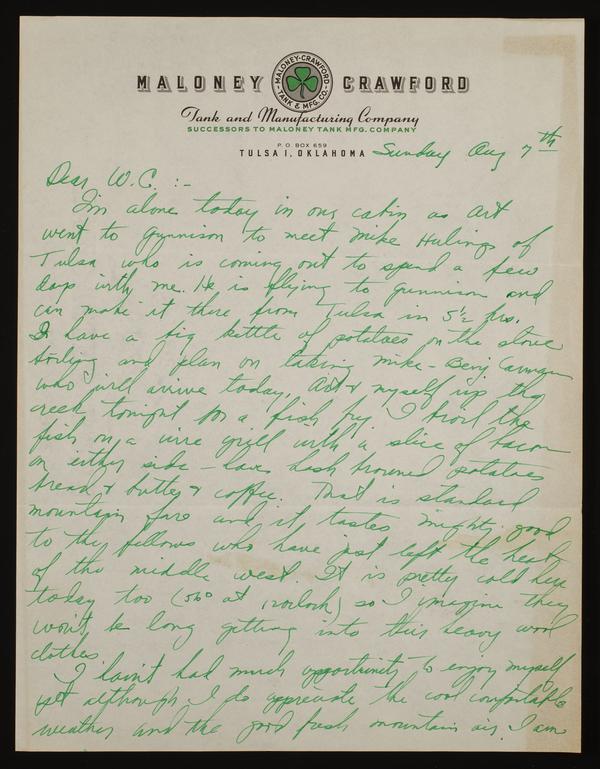 MALONEY CRAWFORD
MALONEY-CRAWFORD TANK & MFG. CO.
Tank and Manufacturing Company
SUCCESSORS TO MALONEY TANK MFG. COMPANY
P. O. BOX 659
TULSA 1, OKLAHOMA
Sunday Aug 7th
Dear W.C. :-
I'm alone today in our cabin as Art
went to Gunnison to meet Mike Hulings of
Tulsa who is coming out to spend a few
days with me. He is flying to Gunnison and
can make it there from Tulsa in 5½ hrs.
I have a big kettle of potatoes on the stove
boiling and plan on taking Mike - Benj Carman
who will arrive today, Art & myself up the
creek tonight for a fish fry. I broil the
fish on a wire grill with a slice of bacon
on either side - have hash browned potatoes
bread & butter & coffee. That is standard
mountain fare and it tastes mighty good
to the fellows who have just left the heat
of the middle west. It is pretty cold here
today too (56° at 12 oclock) so I imagine they
won't be long getting into their heavy wool
clothes.
I haint had much opportunity to enjoy myself
yet although I do appreciate the cool comfortable
weather and the good fresh mountain air. I am